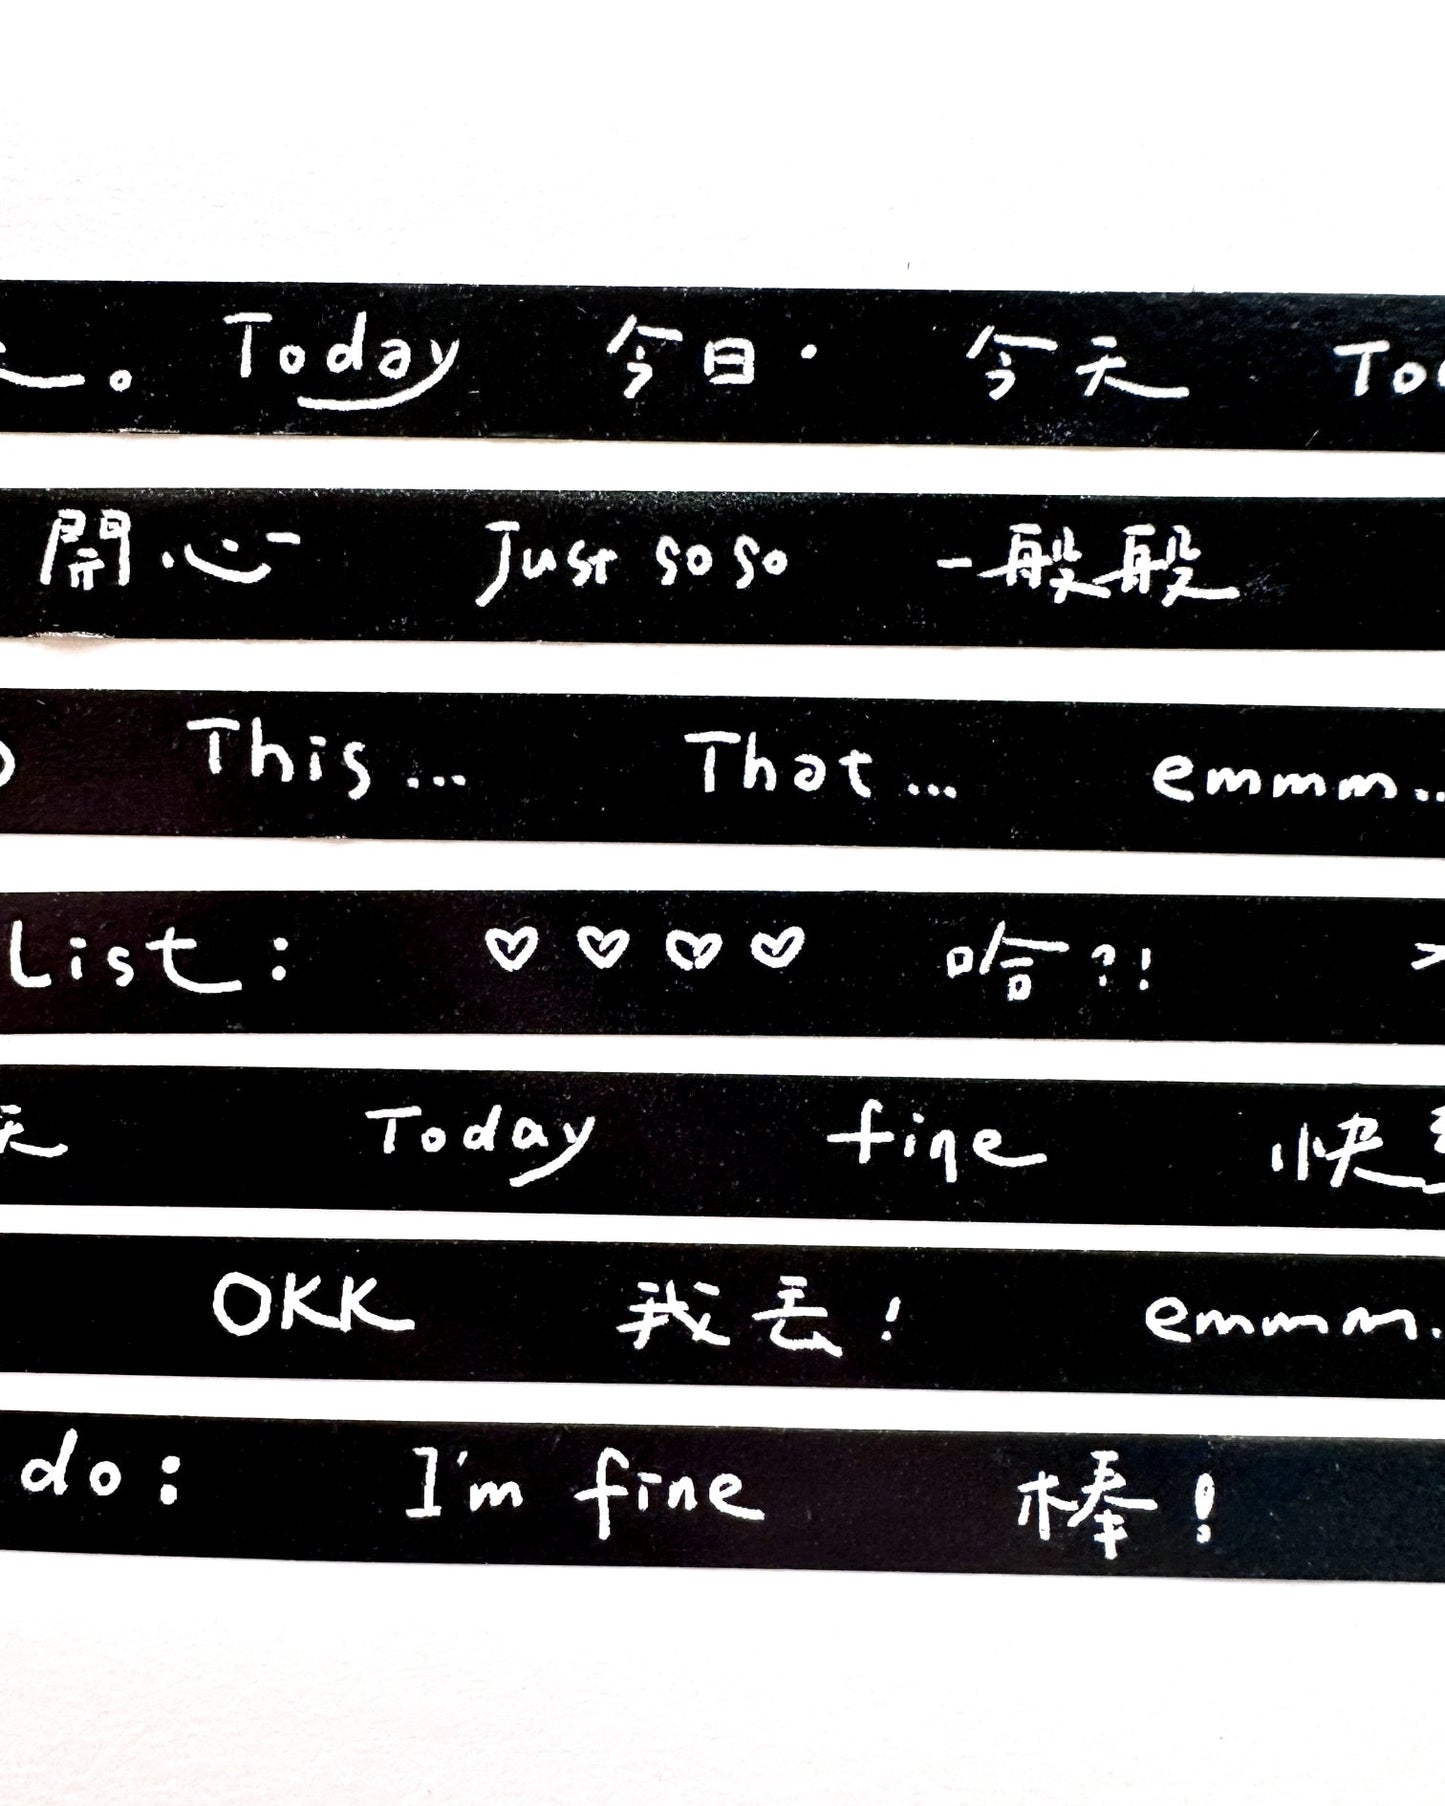 Today 今日· 今天 To
開心 Just so so 一般般
This... That... emmm..
List: ♡♡♡♡ 哈?!
天 Today fine 快
OKK 我丟! emmm.
do: I'm fine 棒!